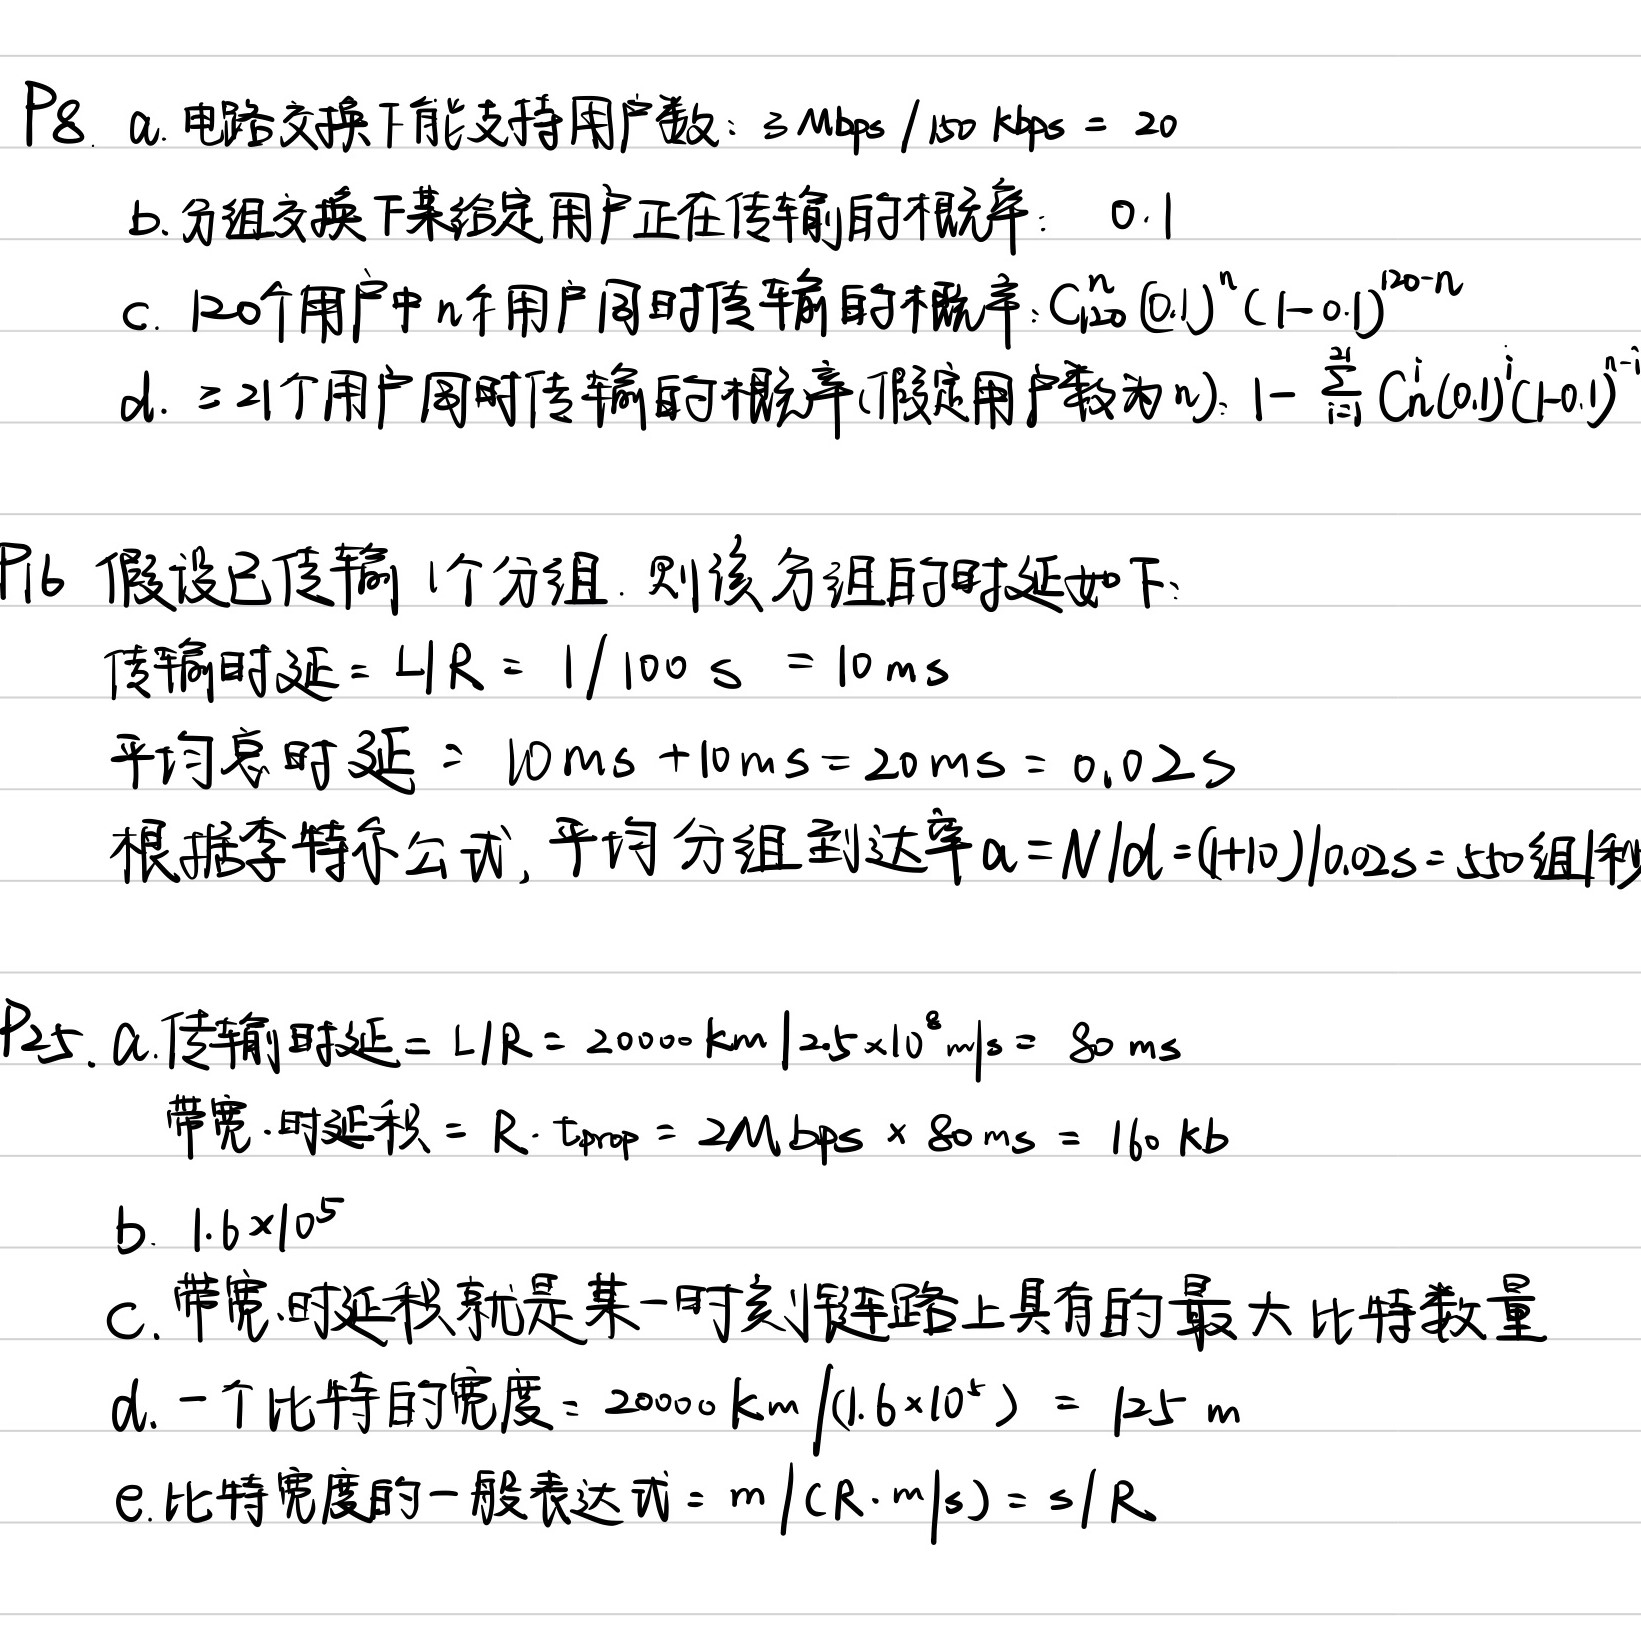 P8. a. 电路交换下能支持用户数: 3 Mbps / 150 kbps = 20
b. 分组交换下某给定用户正在传输的概率: 0.1
c. 120个用户中n个用户同时传输的概率: C₁₂₀ⁿ (0.1)ⁿ (1-0.1)¹²⁰⁻ⁿ
d. ≥21个用户同时传输的概率(假定用户数为n): 1 - Σ_{i=1}^{21} Cₙⁱ (0.1)ⁱ (1-0.1)ⁿ⁻ⁱ
P16 假设已传输1个分组. 则该分组的时延如下:
传输时延 = L/R = 1/100 s = 10 ms
平均总时延 = 10 ms + 10 ms = 20 ms = 0.02 s
根据李特尔公式, 平均分组到达率 a = N/d = (1+10)/0.02s = 550组/秒
P25. a. 传输时延 = L/R = 20000 km / 2.5×10⁸ m/s = 80 ms
带宽·时延积 = R·t_prop = 2Mbps × 80 ms = 160 kb
b. 1.6×10⁵
c. 带宽·时延积就是某一时刻链路上具有的最大比特数量
d. 一个比特的宽度 = 20000 km / (1.6×10⁵) = 125 m
e. 比特宽度的一般表达式 = m / (R·m/s) = s/R